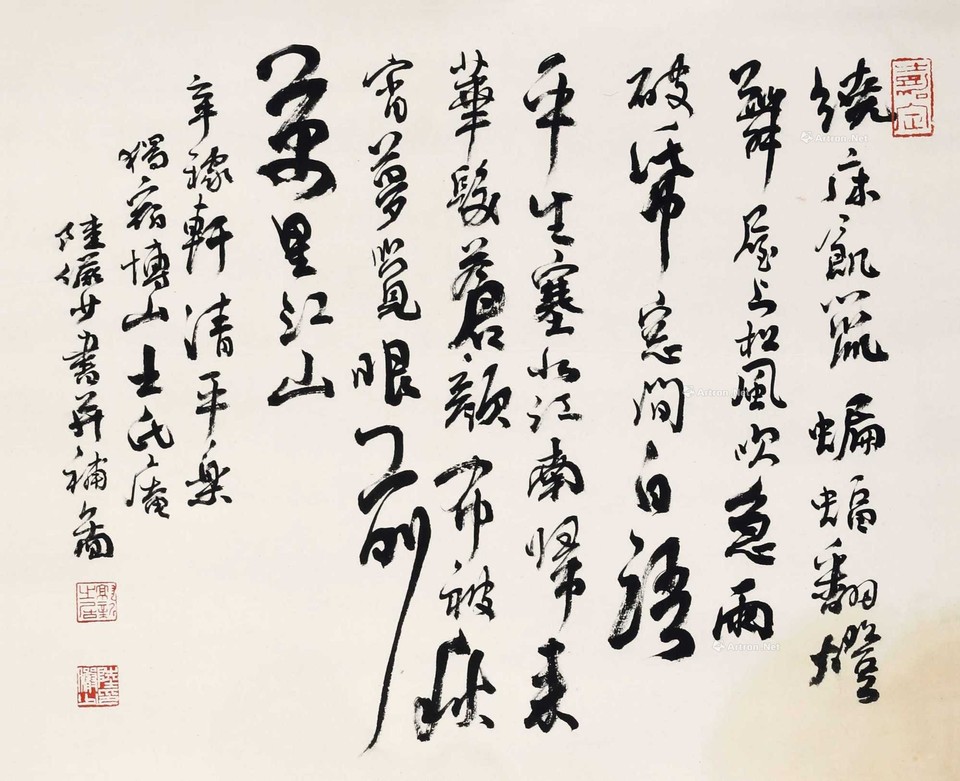 嘉定
繞床飢鼠蝙蝠翻燈
舞屋上松風吹急雨
破帋窓間自語
平生塞北江南歸來
華髮蒼顏布被秋
宵夢覺眼前
萬里江山
辛稼軒清平樂
獨宿博山王氏庵
陸儼少書并補圖
Artron.Net
Artron.Net
Artron.Net